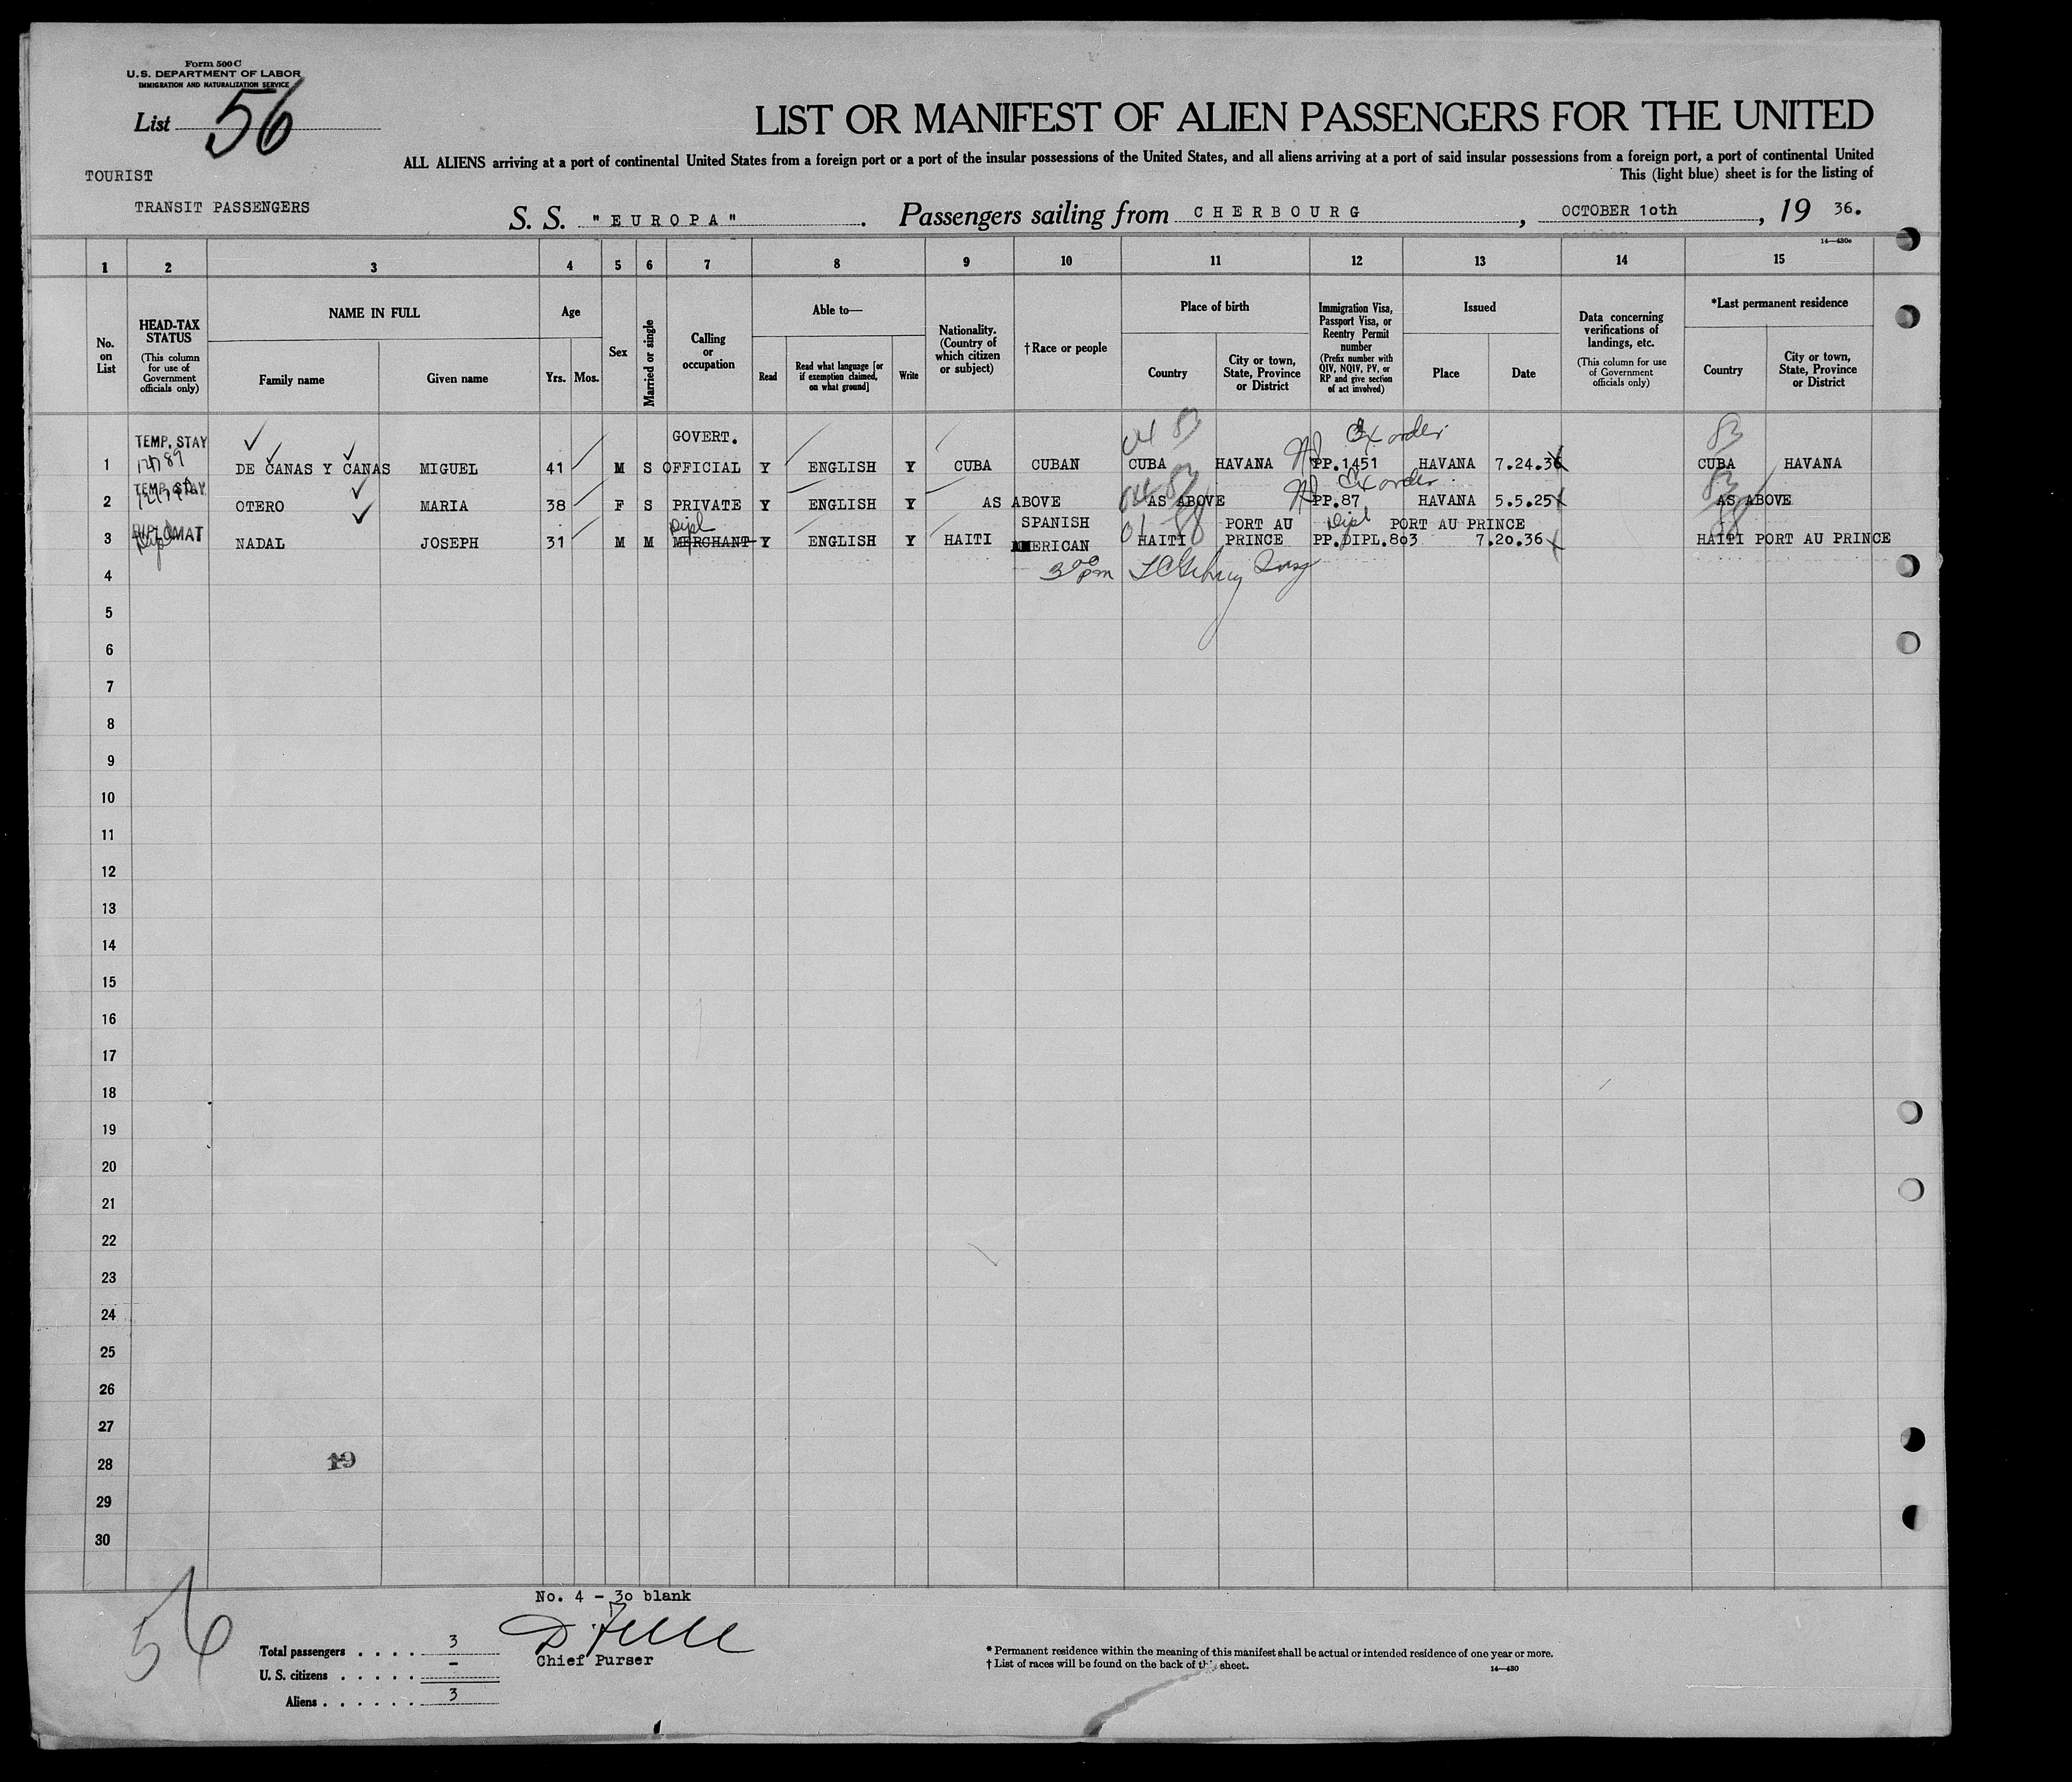 Form 500 C
U.S. DEPARTMENT OF LABOR
IMMIGRATION AND NATURALIZATION SERVICE
List 56
LIST OR MANIFEST OF ALIEN PASSENGERS FOR THE UNITED
ALL ALIENS arriving at a port of continental United States from a foreign port or a port of the insular possessions of the United States, and all aliens arriving at a port of said insular possessions from a foreign port, a port of continental United
TOURIST
This (light blue) sheet is for the listing of
TRANSIT PASSENGERS
S. S. "EUROPA". Passengers sailing from CHERBOURG, OCTOBER 1oth, 19 36.
14—430c
1 2 3 4 5 6 7 8 9 10 11 12 13 14 15
No. on List
HEAD-TAX STATUS
(This column for use of Government officials only)
NAME IN FULL
Family name
Given name
Age
Yrs. Mos.
Sex
Married or single
Calling or occupation
Able to—
Read
Read what language [or if exemption claimed, on what ground]
Write
Nationality. (Country of which citizen or subject)
†Race or people
Place of birth
Country
City or town, State, Province or District
Immigration Visa, Passport Visa, or Reentry Permit number
(Prefix number with QIV, NQIV, PV, or RP and give section of act involved)
Issued
Place
Date
Data concerning verifications of landings, etc.
(This column for use of Government officials only)
*Last permanent residence
Country
City or town, State, Province or District
TEMP. STAY GOVERT. 83 3 Ex order 83
1 DE CANAS Y CANAS MIGUEL 41 M S OFFICIAL Y ENGLISH Y CUBA CUBAN CUBA HAVANA PP.1451 HAVANA 7.24.36 CUBA HAVANA
TEMP. STAY Ex order
2 OTERO MARIA 38 F S PRIVATE Y ENGLISH Y AS ABOVE AS ABOVE PP.87 HAVANA 5.5.25 AS ABOVE
DIPLOMAT Dipl SPANISH PORT AU Dipl PORT AU PRINCE
3 NADAL JOSEPH 31 M M MERCHANT Y ENGLISH Y HAITI AMERICAN HAITI PRINCE PP.DIPL.803 7.20.36 HAITI PORT AU PRINCE
4 3 00 pm
5
6
7
8
9
10
11
12
13
14
15
16
17
18
19
20
21
22
23
24
25
26
27
28 19
29
30
No. 4 - 3o blank
56
Total passengers . . . . 3
U. S. citizens . . . . . -
Aliens . . . . . . 3
Chief Purser
* Permanent residence within the meaning of this manifest shall be actual or intended residence of one year or more.
† List of races will be found on the back of sheet.
14—430